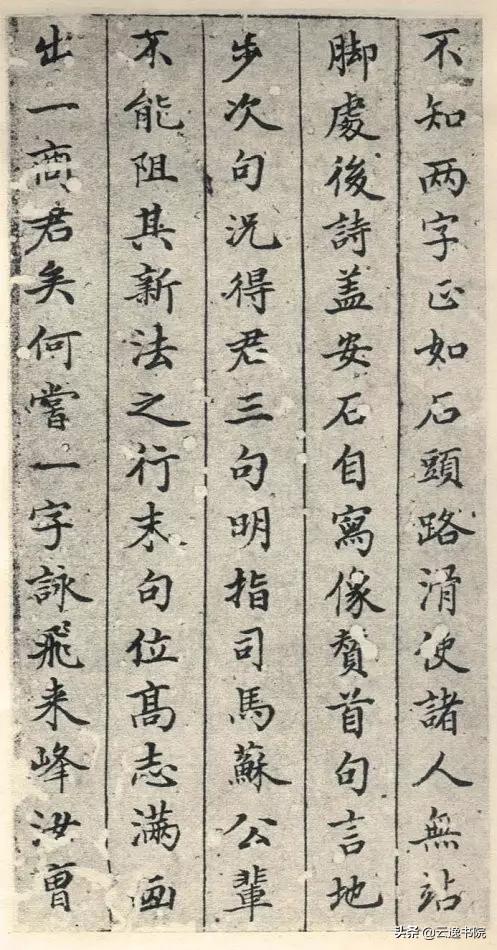 不知两字正如石頭路滑使諸人無站
脚處後詩盖安石自寫像賛首句言地
步次句况得君三句明指司馬蘇公輩
不能阻其新法之行末句位高志满画
出一商君矣何嘗一字詠飛来峰汝曹
头条@云逸书院